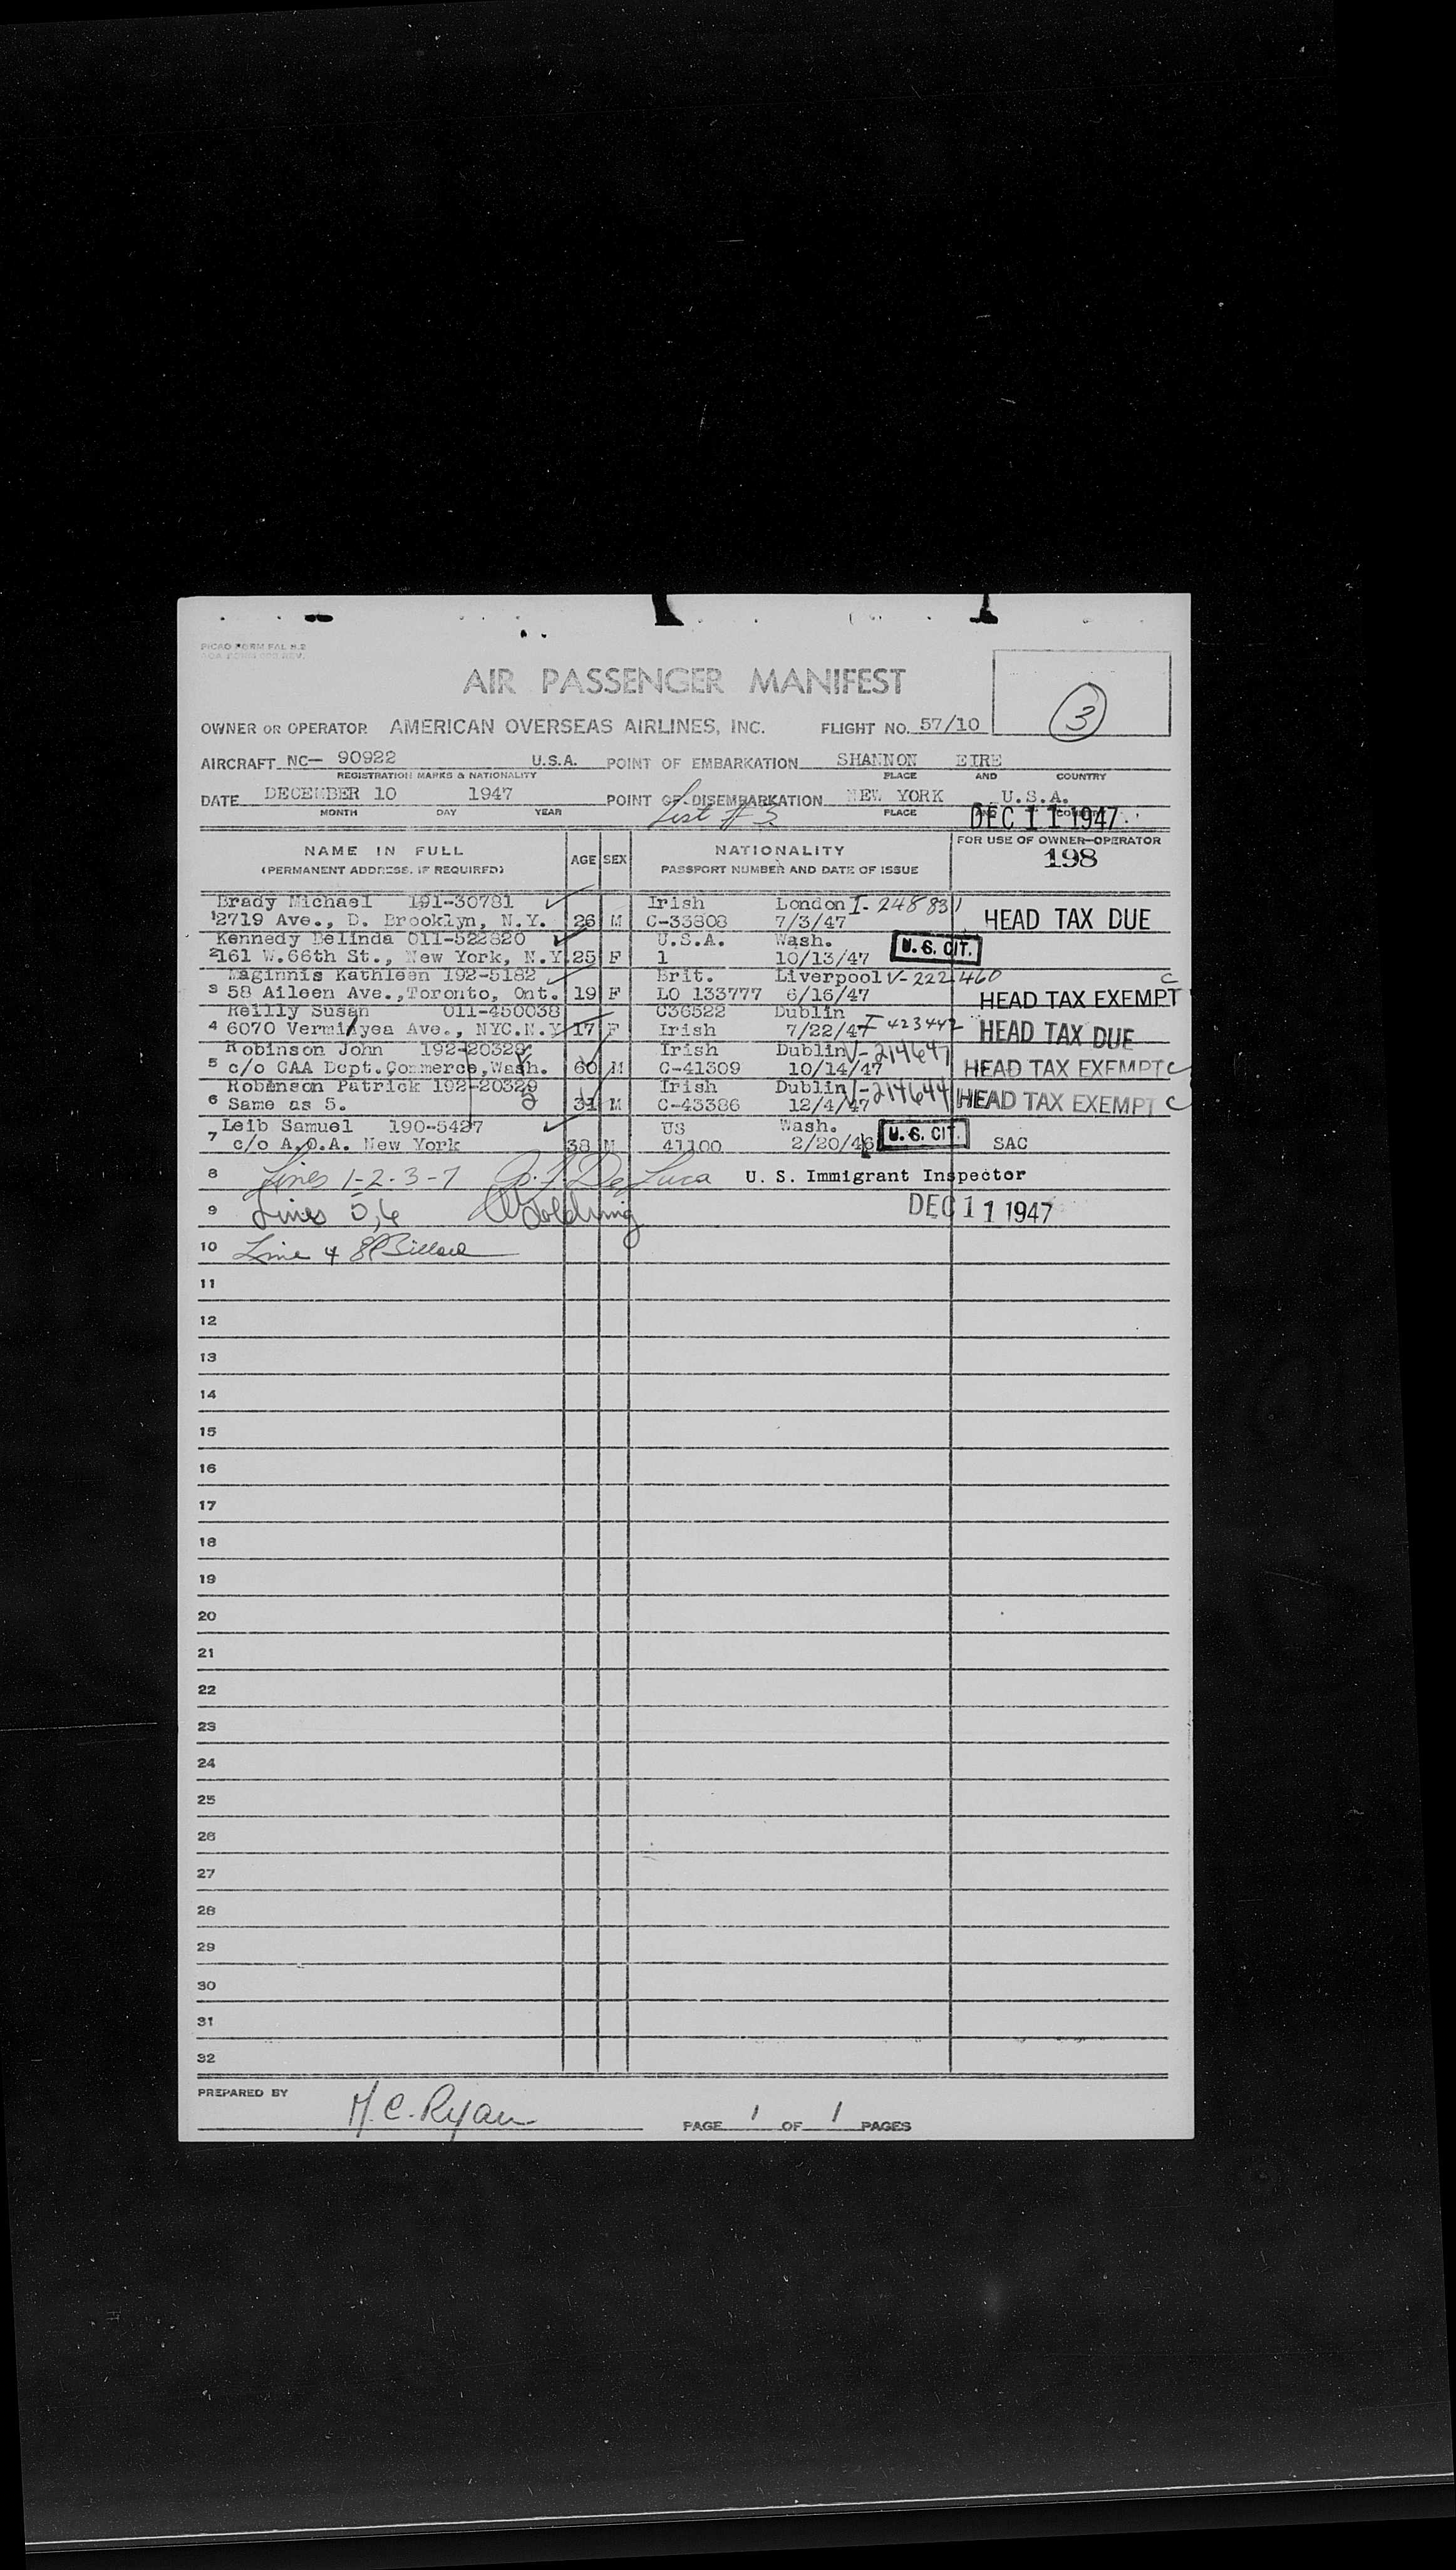 PICAO FORM FAL N.2
AIR PASSENGER MANIFEST
3
OWNER OR OPERATOR AMERICAN OVERSEAS AIRLINES, INC. FLIGHT NO. 57/10
AIRCRAFT NC— 90922 U.S.A. POINT OF EMBARKATION SHANNON EIRE
REGISTRATION MARKS & NATIONALITY PLACE AND COUNTRY
DATE DECEMBER 10 1947 POINT OF DISEMBARKATION NEW YORK U.S.A.
MONTH DAY YEAR List # 3 PLACE DEC 11 1947
NAME IN FULL AGE SEX NATIONALITY FOR USE OF OWNER-OPERATOR
(PERMANENT ADDRESS, IF REQUIRED) PASSPORT NUMBER AND DATE OF ISSUE 198
Brady Michael 191-30781 Irish London I-248831
1 2719 Ave., D. Brooklyn, N.Y. 26 M C-33808 7/3/47 HEAD TAX DUE
Kennedy Delinda 011-522820 U.S.A. Wash. U.S. CIT.
2 161 W.66th St., New York, N.Y. 25 F 1 10/13/47
Maginnis Kathleen 192-5182 Brit. Liverpool V-222460 C
3 58 Aileen Ave.,Toronto, Ont. 19 F LO 133777 6/16/47 HEAD TAX EXEMPT
Reilly Susan 011-450038 C36522 Dublin
4 6070 Vermilyea Ave., NYC.N.Y 17 F Irish 7/22/47 I 423442 HEAD TAX DUE
Robinson John 192-20328 Irish Dublin V-214647
5 c/o CAA Dept.Commerce,Wash. 60 M C-41309 10/14/47 HEAD TAX EXEMPT C
Robinson Patrick 192-20329 Irish Dublin V-214644
6 Same as 5. 31 M C-43386 12/4/47 HEAD TAX EXEMPT C
Leib Samuel 190-5427 US Wash. U.S. CIT.
7 c/o A.O.A. New York 38 M 41100 2/20/46 SAC
8 Lines 1-2-3-7 De Luca U. S. Immigrant Inspector
9 Lines 5,6 Goldring DEC 11 1947
10 Line 4
11
12
13
14
15
16
17
18
19
20
21
22
23
24
25
26
27
28
29
30
31
32
PREPARED BY M.C. Ryan
PAGE 1 OF 1 PAGES